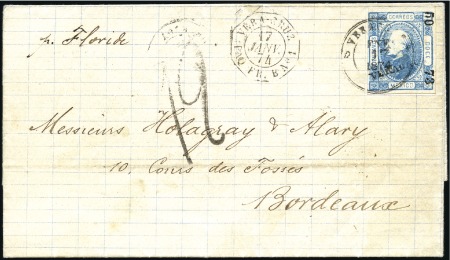 pr. Floride
VERA-CRUZ
17
JANV.
74
PAQ. FR. B Nº 1
CORREOS
MEXICO
60
73
12
Messieurs Holagray & Alary
10, Cours des Fossés
Bordeaux